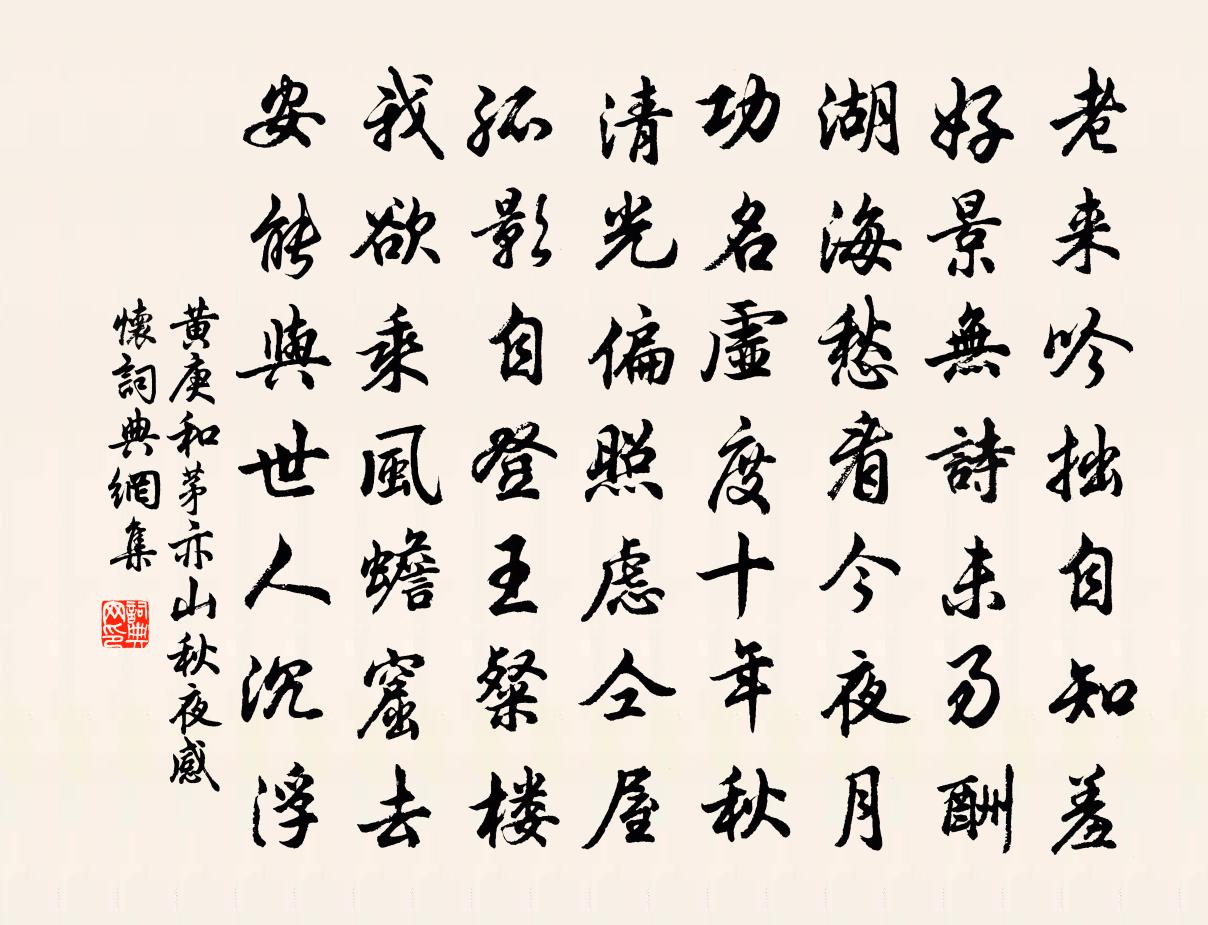 老来吟拙自知羞
好景無詩未易酬
湖海愁看今夜月
功名虛度十年秋
清光偏照虑仝屋
孤影自登王粲楼
我欲乘風蟾窟去
安能與世人沉浮
黄庚和茅亦山秋夜感
懷詞典網集
詞典
网印